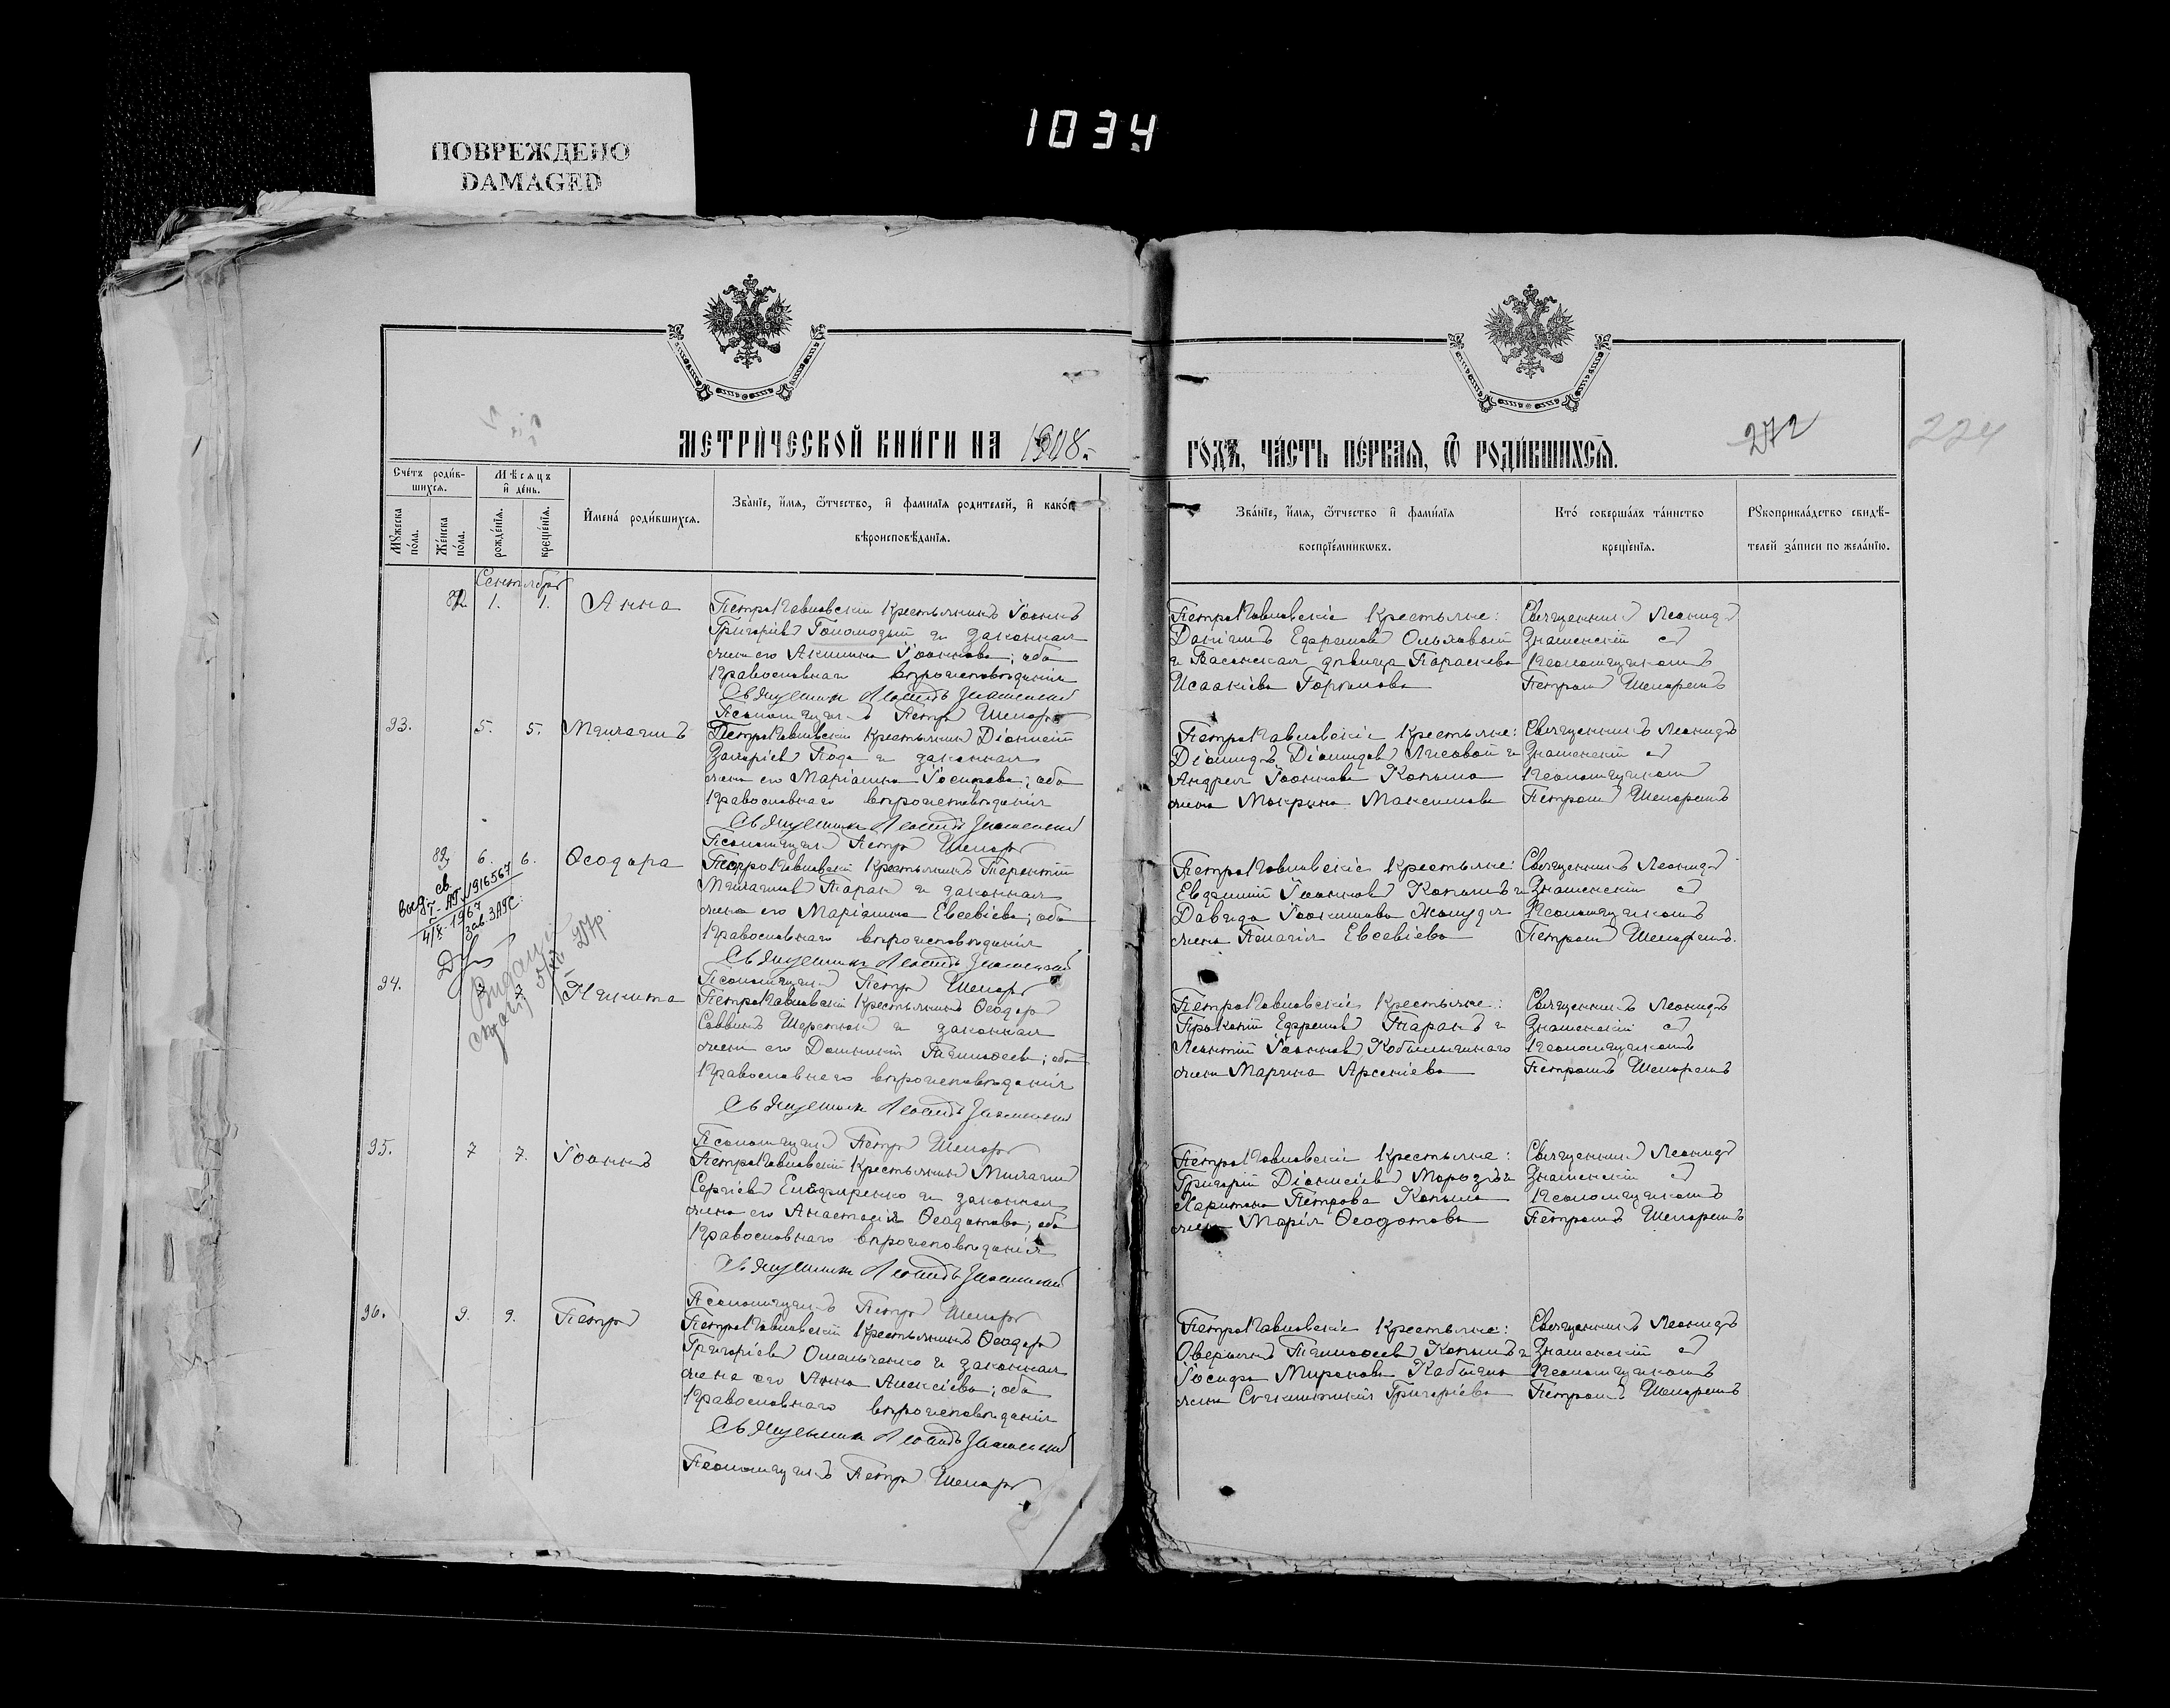 ПОВРЕЖДЕНО
DAMAGED
1034
МЕТРИ́ЧЕСКОЙ КНИ́ГИ НА 1908.
ГО́ДЪ, ЧА́СТЬ ПЕ́РВАЯ, Ѿ РОДИ́ВШИХСЯ.
272
224
Сче́тъ роди́в-
шихся.
Мѣ́сяцъ
и де́нь.
Мꙋ́жеска
по́ла.
Же́нска
по́ла.
рожде́нїя.
креще́нїя.
И҆мена́ роди́вшихся.
Зва́нїе, и҆́мя, ѻ҆́тчество, и҆ фами́лїя роди́телей, и҆ како́гѡ
вѣроисповѣ́данїя.
Зва́нїе, и҆́мя, ѻ҆́тчество и҆ фами́лїя
воспрїе́мникѡвъ.
Кто́ соверша́лъ та́инство
креще́нїя.
Рꙋкоприкла́дство свидѣ́-
телей за́писи по жела́нїю.
Сентябрь
1. 1. Анна
Петропавловскій крестьянинъ Іоаннъ
Григоріевъ Голомодый и законная
жена его Акилина Іоаннова; оба
православнаго вѣроисповѣданія
Священникъ Леонидъ Знаменскій
Псаломщикъ Петръ Шепаръ
Петропавловскіе крестьяне:
Даніилъ Ефремовъ Ольховый
дѣвица Параскева
Исаакіева
Священникъ Леонидъ
Знаменскій съ
псаломщикомъ
Петромъ Шепаремъ
93. 5. 5. Михаилъ
Петропавловскій крестьянинъ Діонисій
Захаріевъ и законная
жена его Маріамна Іосифова; оба
православнаго вѣроисповѣданія
Священникъ Леонидъ Знаменскій
Псаломщикъ Петръ Шепаръ
Петропавловскіе крестьяне:
Діомидъ Діомидовъ Лисовой и
Андрея Іоаннова Копыла
жена Макрина Максимова
Священникъ Леонидъ
Знаменскій съ
псаломщикомъ
Петромъ Шепаремъ
6. 6. Ѳеодора
Петропавловскій крестьянинъ Терентій
Михаиловъ Таранъ и законная
жена его Маріамна Евсевіева; оба
православнаго вѣроисповѣданія
Священникъ Леонидъ Знаменскій
Псаломщикъ Петръ Шепаръ
св.
1916567
1967
зав. ЗАГС
Петропавловскіе крестьяне:
Евфимій Іоанновъ Копылъ и
Давида
жена Пелагія Евсевіева
Священникъ Леонидъ
Знаменскій съ
псаломщикомъ
Петромъ Шепаремъ.
94. 7 7 Никита
Петропавловскій крестьянинъ Ѳеодоръ
Саввинъ Шерстюкъ и законная
жена его Домникія Тимоѳеева; оба
православнаго вѣроисповѣданія
Священникъ Леонидъ Знаменскій
Псаломщикъ Петръ Шепаръ
Петропавловскіе крестьяне:
Прокопій Ефремовъ Таранъ и
Леонтій Іоанновъ
жена Марѳина Арсеніева
Священникъ Леонидъ
Знаменскій съ
псаломщикомъ
Петромъ Шепаремъ
95. 7 7. Іоаннъ
Петропавловскій крестьянинъ Михаилъ
Сергіевъ и законная
жена его Анастасія Ѳеодотова; оба
православнаго вѣроисповѣданія
Священникъ Леонидъ Знаменскій
Псаломщикъ Петръ Шепаръ
Петропавловскіе крестьяне:
Григорій Діонисіевъ Морозъ и
Харитона Петрова Копыла
жена Марія Ѳеодотова
Священникъ Леонидъ
Знаменскій съ
псаломщикомъ
Петромъ Шепаремъ
96. 9. 9. Петръ
Петропавловскій крестьянинъ Ѳеодоръ
Григоріевъ Омельченко и законная
жена его Анна Алексіева; оба
православнаго вѣроисповѣданія
Священникъ Леонидъ Знаменскій
Псаломщикъ Петръ Шепаръ
Петропавловскіе крестьяне:
Аверкій Тимоѳеевъ Копылъ и
Іосифа Миронова
жена Григоріева
Священникъ Леонидъ
Знаменскій съ
псаломщикомъ
Петромъ Шепаремъ